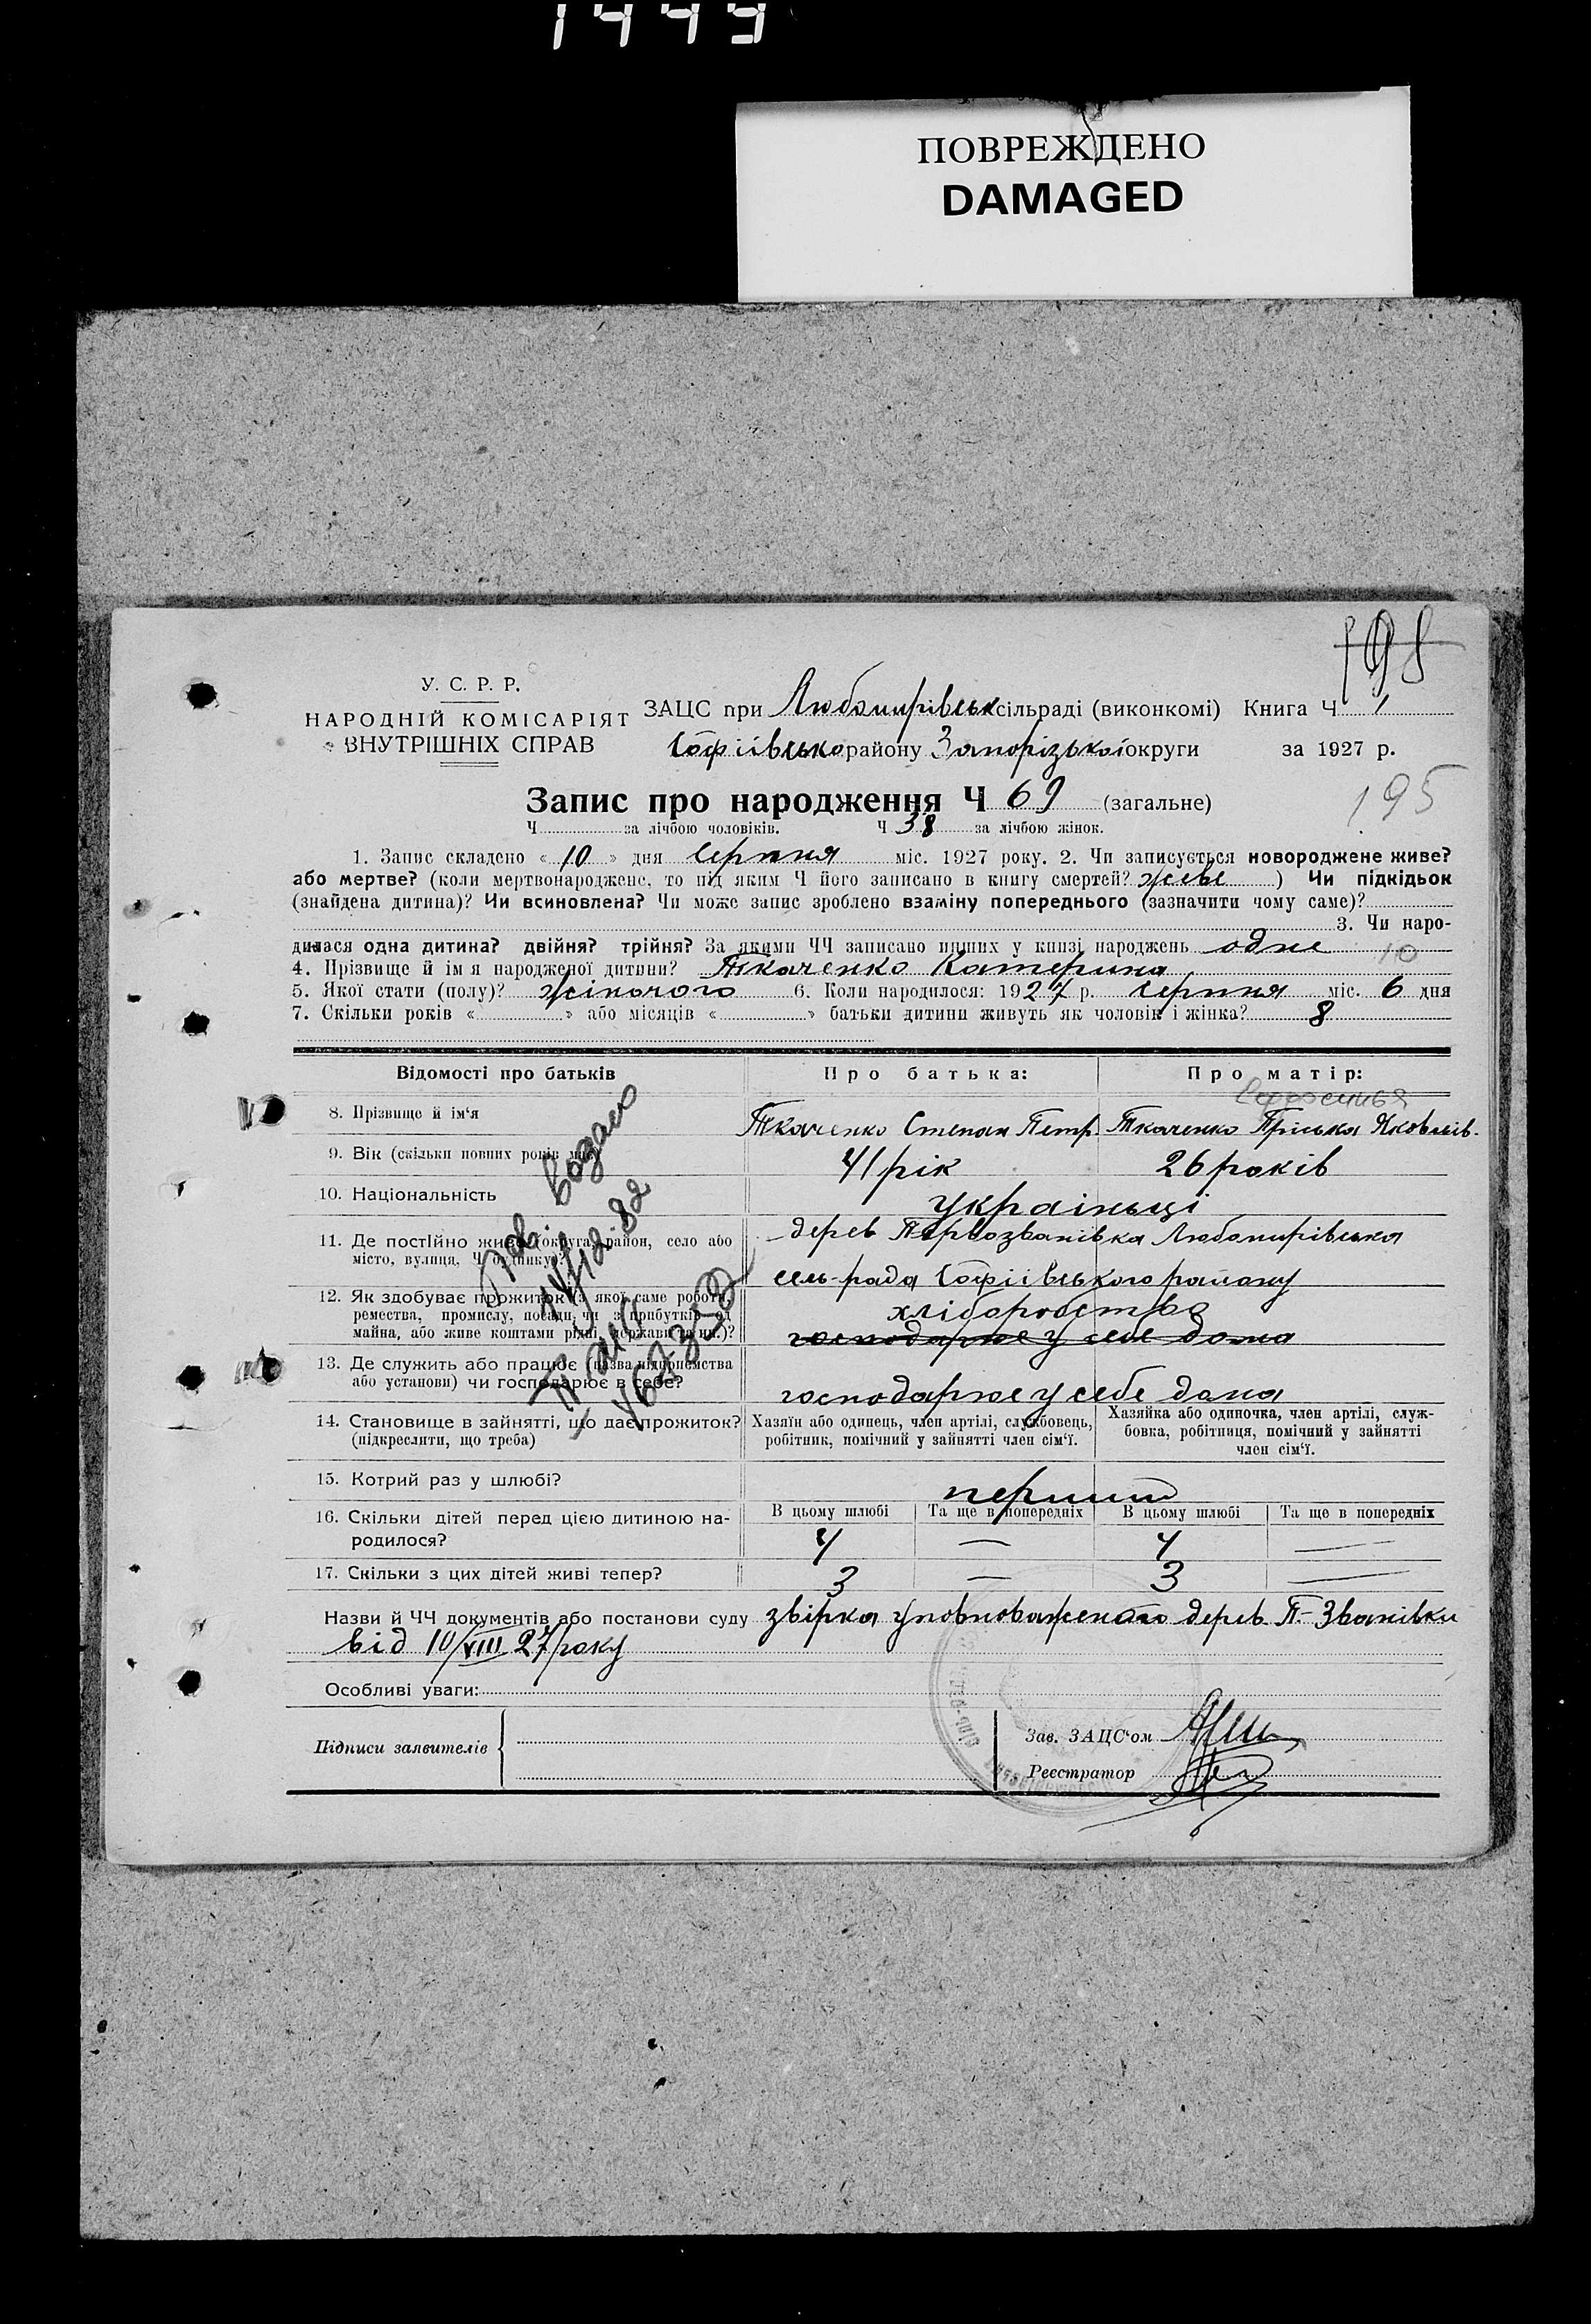 1449
ПОВРЕЖДЕНО
DAMAGED
198
У. С. Р. Р.
НАРОДНІЙ КОМІСАРІЯТ
ВНУТРІШНІХ СПРАВ
ЗАЦС при Любомирівськ сільраді (виконкомі) Книга Ч 1
Софіівсько району Запорізькоі округи за 1927 р.
Запис про народження Ч 69 (загальне)
195
Ч за лічбою чоловіків. Ч 38 за лічбою жінок.
1. Запис складено « 10 » дня серпня міс. 1927 року. 2. Чи записується новороджене живе?
або мертве? (коли мертвонароджене, то під яким Ч його записано в книгу смертей? живе ) Чи підкідьок
(знайдена дитина)? Чи всиновлена? Чи може запис зроблено взаміну попереднього (зазначити чому саме)?
3. Чи наро-
дилася одна дитина? двійня? трійня? За якими ЧЧ записано инших у книзі народжень одне 10
4. Прізвище й ім я народженої дитини? Ткаченко Катерина
5. Якої стати (полу)? жіночого 6. Коли народилося: 1927 р. серпня міс. 6 дня
7. Скільки років « » або місяців « » батьки дитини живуть як чоловік і жінка? 8
Відомості про батьків Про батька: Про матір:
8. Прізвище й ім‘я Ткаченко Степан Петр. Ткаченко Пріська Яковлів.
9. Вік (скільки повних років має) 41 рік 26 років
10. Національність украіньці
11. Де постійно живе (округа, район, село або
місто, вулиця, Ч будинку)?
дерев Первозванівка Любомирівська
сель-рада Софіівського району
12. Як здобуває прожиток (з якої саме роботи,
ремества, промислу, посади, чи з прибутків од
майна, або живе коштами рідні, держави то ин.)?
хліборобство
господарює у себе дома
13. Де служить або працює (назва підприємства
або установи) чи господарює в себе?
господарює у себе дома
14. Становище в зайнятті, що дає прожиток?
(підкреслити, що треба)
Хазяїн або одинець, член артілі, службовець,
робітник, помічний у зайнятті член сім‘ї.
Хазяйка або одиночка, член артілі, служ-
бовка, робітниця, помічний у зайнятті
член сім‘ї.
15. Котрий раз у шлюбі? перший
16. Скільки дітей перед цією дитиною на-
родилося?
В цьому шлюбі Та ще в попередніх В цьому шлюбі Та ще в попередніх
4 — 4 —
17. Скільки з цих дітей живі тепер? 3 — 3 —
Назви й ЧЧ документів або постанови суду звірка уповноваженого дерев П.-Званівки
від 10/VIII 27 року
Особливі уваги:
Підписи заявителів
Зав. ЗАЦС‘ом
Реєстратор